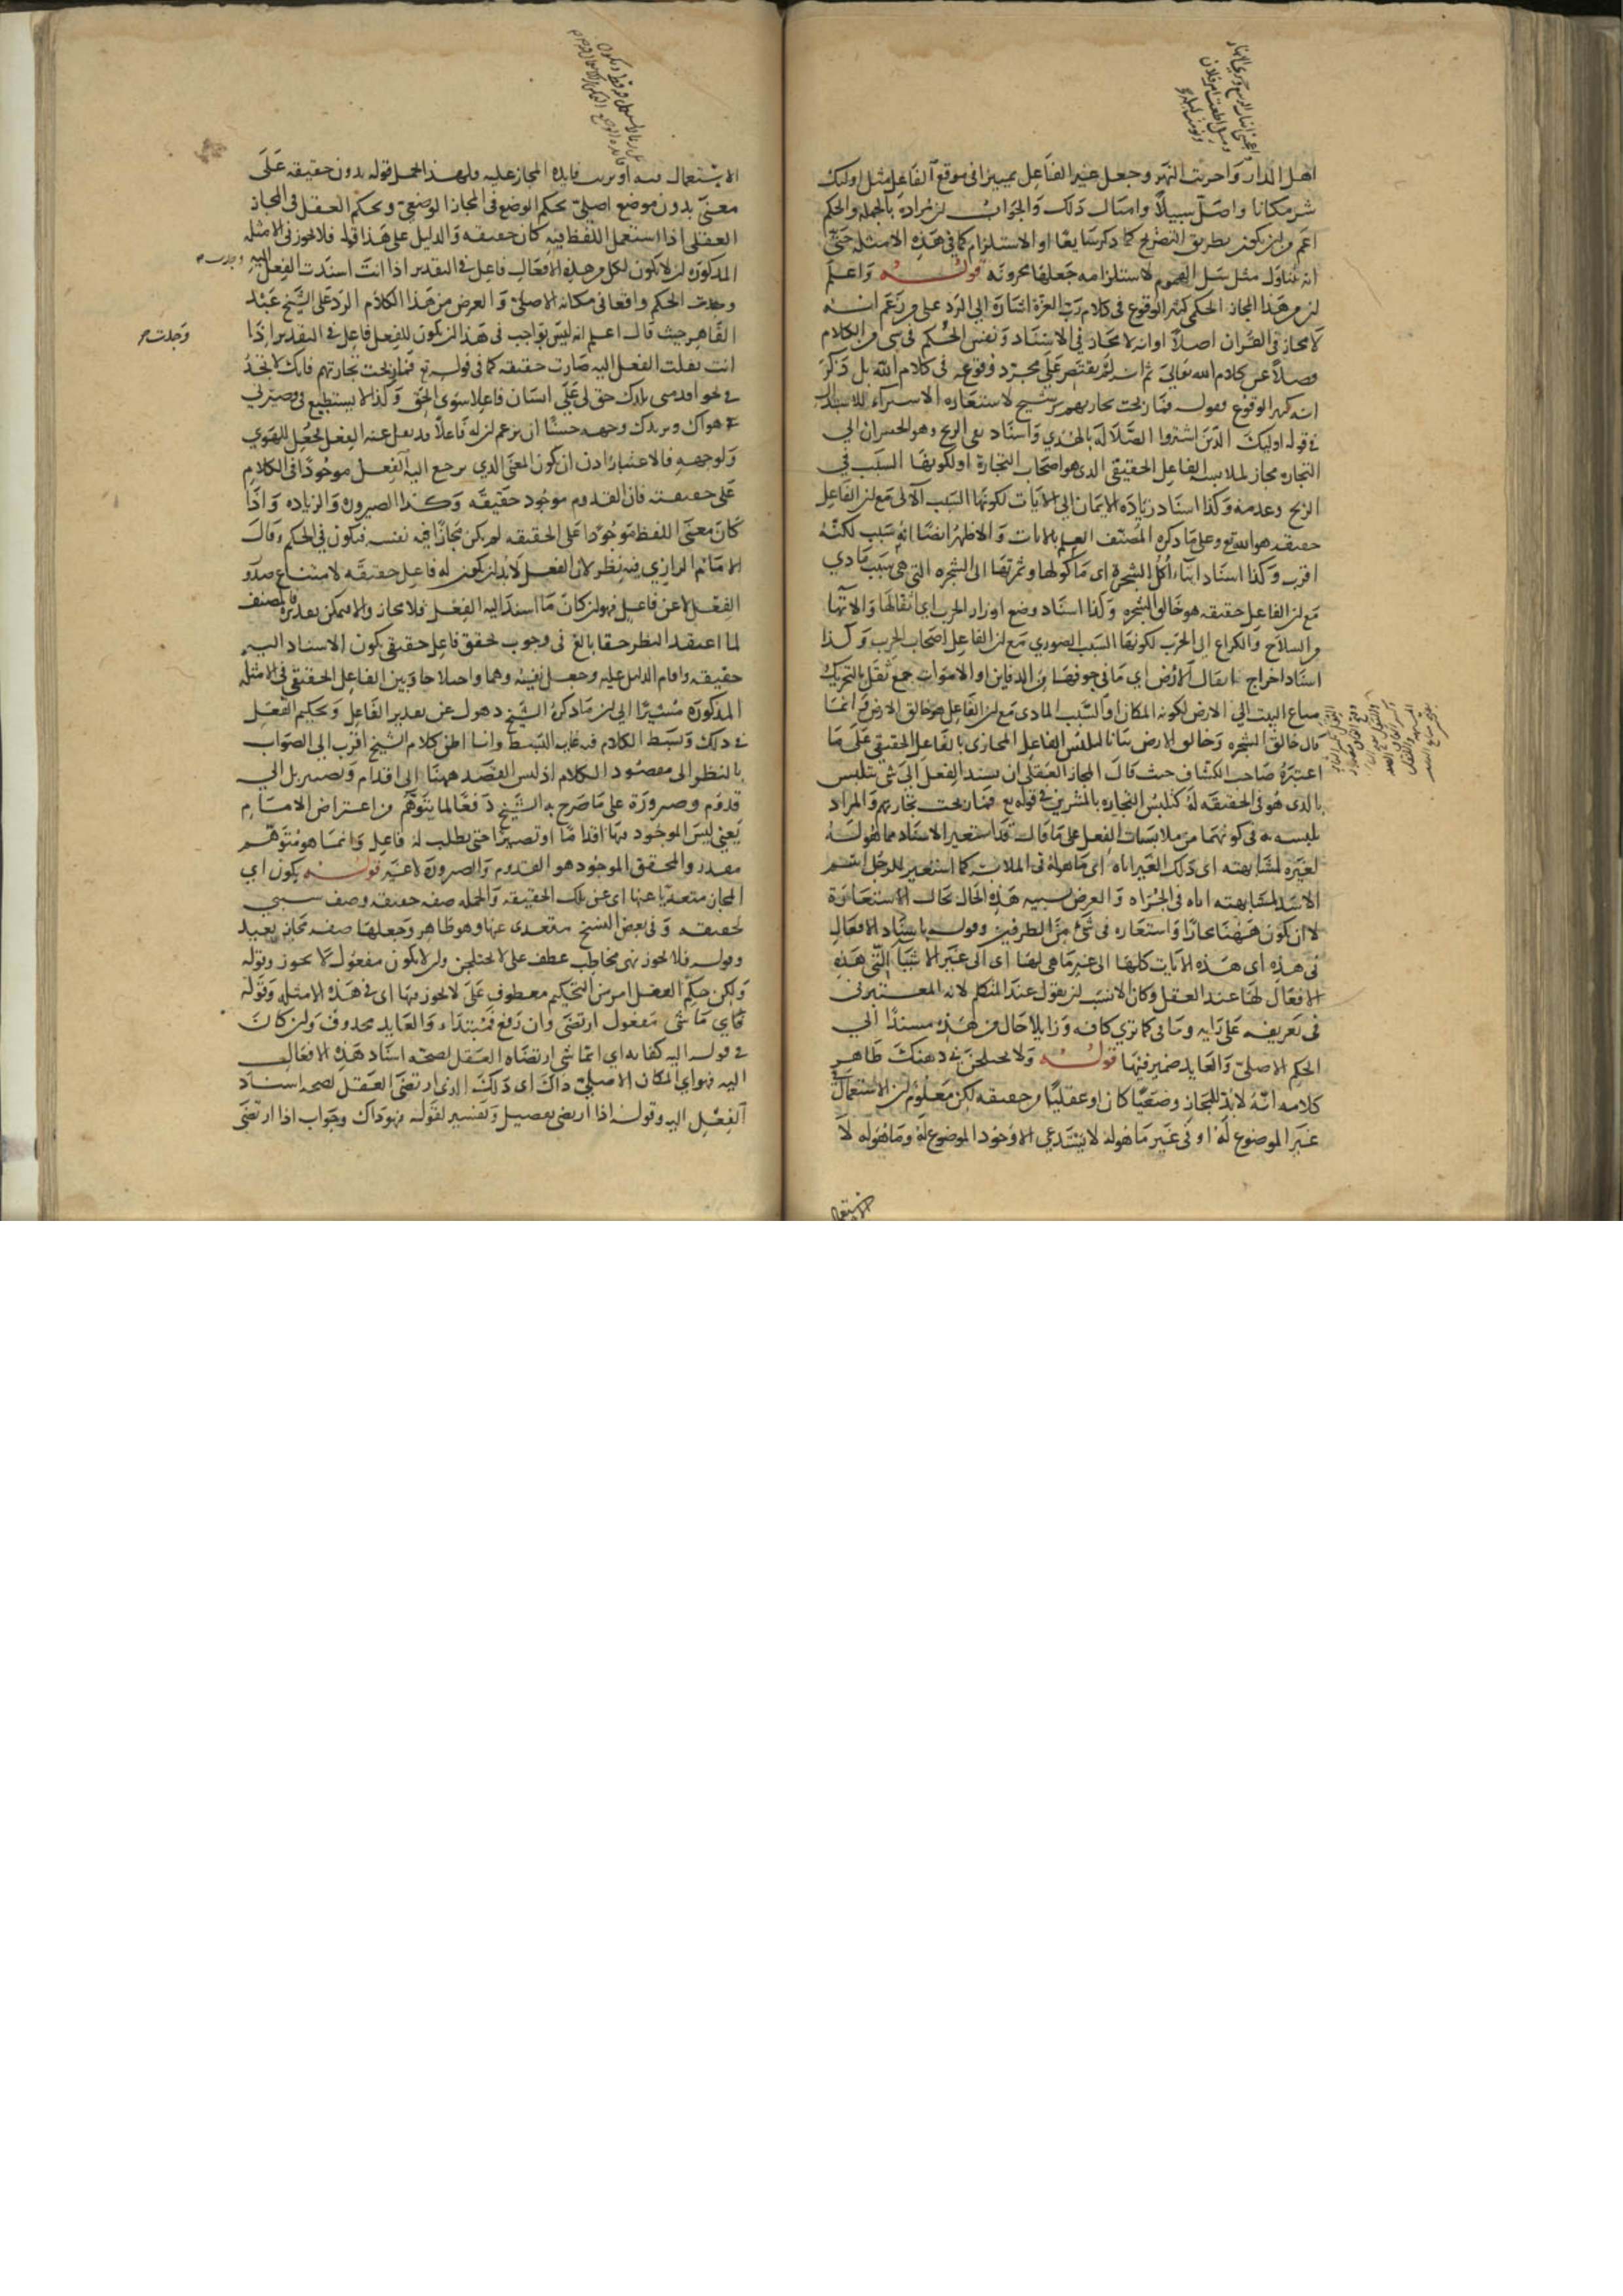 اهل الدار واجريت النهر وجعل غير الفاعل بتمييزا في موقع الفاعل مثل اولئك
شر مكانا واضل سبيلا وامثال ذلك والجواب ان مراده بالجملة والحكم
اعم من ان يكون بطريق التصريح كما ذكر سابقا او الاستلزام كما في هذه الامثلة حتى
انه يتناول مثل سل الهموم لاستلزامه جعلها محزونة قوله واعلم
ان من هذا المجاز الحكمي كثير الوقوع في كلام رب العزة اشارة الي الرد على من زعم انه
لا مجاز في القران اصلا او انه لا مجاز في الاسناد ونفس الحكم في شي من الكلام
فضلا عن كلام الله تعالي ثم انه لم يقتصر على مجرد وقوعه في كلام الله بل ذكر
انه كثير الوقوع فقوله فما ربحت تجارتهم ترشيح لاستعارة الاشتراء للاستبدال
في قوله اوليك الذين اشتروا الضلالة بالهدي واسناد نفى الربح وهو الخسران الي
التجارة مجاز لملابسة الفاعل الحقيقي الذي هو اصحاب التجارة او لكونها السبب في
الربح وعدمه وكذا اسناد زيادة الايمان الي الايات لكونها السبب الآلي مع ان الفاعل
حقيقة هو الله تع وعلى ما ذكره المصنف العلم بالايات والاظهر ايضا انه سبب لكنه
اقرب وكذا اسناد ايتاء اكل الشجرة اى ماكولها وثمرتها الى الشجرة التي هي سبب مادي
مع ان الفاعل حقيقة هو خالق الشجرة وكذا اسناد وضع اوزار الحرب اي اثقالها والاتها
من السلاح والكراع الي الحرب لكونها السبب الصوري مع ان الفاعل اصحاب الحرب وكذا
اسناد اخراج اثقال الارض اي ما في جوفها من الدفاين او الاموات جمع ثقل بالتحريك
متاع البيت الي الارض لكونه المكان او السبب المادي مع ان الفاعل هو خالق الارض وانما
قال خالق الشجرة وخالق الارض بيانا لتلبس الفاعل المجازي بالفاعل الحقيقي على ما
اعتبره صاحب الكشاف حيث قال المجاز العقلي ان يسند الفعل الي شي يتلبس
بالذي هو في الحقيقة له كتلبس التجارة بالمشترين في قوله تع فما ربحت تجارتهم والمراد
تلبسه به في كونهما من ملابسات الفعل على ما قال قد استعير الاسناد مما هو له
لغيره لمشابهته اى ذلك الغير اياه اى ما هو له في الملابسة كما استعير للرجل اسم
الاسد لمشابهته اياه في الجراه والغرض تشبيه هذه الحال بحال الاستعارة
لا ان يكون ههنا مجازا واستعاره في شئ من الطرفين وقوله باسناد الافعال
في هذه اى هذه الايات كلها الى غير ما هي لها اى الي غير الاشيا التي هذه
الافعال لها عند العقل وكان الانسب ان يقول عند المتكلم لانه المعتبر في
في تعريفه على رايه وما في كما تري كافه وزايلا حال من هذه مسندا الي
الحكم الاصلي والعايد ضمير فيها قوله ولا يختلجن في ذهنك ظاهر
كلامه انه لا بد للمجاز وضعيا كان او عقليا من حقيقة لكن معلوم ان الاستعمال في
غير الموضوع له او في غير ما هو له لا يستدعي الا وجود الموضوع له وما هو له لا
الاستعمال فيه او ترتب فايدة المجاز عليه فلهذا حمل قوله بدون حقيقة على
معنى بدون موضع اصلي بحكم الوضع في المجاز الوضعي وبحكم العقل في المجاز
العقلي اذا استعمل اللفظ فيه كان حقيقة والدليل على هذا قوله فلا يجوز في الامثلة
المذكورة ان لا يكون لكل من هذه الافعال فاعل في التقدير اذا انت اسندت الفعل اليه
وجدت الحكم واقعا في مكانه الاصلي والغرض من هذا الكلام الرد على الشيخ عبد
القاهر حيث قال اعلم انه ليس بواجب في هذا ان يكون للفعل فاعل في التقدير اذا
انت نقلت الفعل اليه صارت حقيقة كما في قوله تع فما ربحت تجارتهم فانك لا تجد
في نحو اقدمني بلدك حق لي على انسان فاعلا سوى الحق وكذا لا يستطيع في وصيرني
هواك ويزيدك وجهه حسنا ان يزعم ان له فاعلا قد نقل عنه الفعل فجعل للهوي
ولوجهه فالاعتبار اذن ان يكون المعنى الذي يرجع اليه الفعل موجودا في الكلام
على حقيقته فان القدوم موجود حقيقة وكذا الصيرورة والزيادة واذا
كان معنى اللفظ موجودا على الحقيقة لم يكن مجازا فيه نفسه فيكون في الحكم وقال
الامام الرازي فيه نظر لان الفعل لا بد ان يكون له فاعل حقيقة لامتناع صدور
الفعل لا عن فاعل فهو ان كان ما اسند اليه الفعل فلا مجاز والا فيمكن تقديره فالمصنف
لما اعتقد النظر حقا بالغ في وجوب تحقق فاعل حقيقي يكون الاسناد اليه
حقيقة واقام الدليل عليه وجعل نفيه وهما واختلاجا وبين الفاعل الحقيقي في الامثلة
المذكورة مشيرا الي ان ما ذكره الشيخ ذهول عن تقدير الفاعل وتحكيم العقل
في ذلك وبسط الكلام فيه غاية البسط وانا اظن كلام الشيخ اقرب الي الصواب
بالنظر الى مقصود الكلام اذ ليس القصد ههنا الي اقدام وتصيير بل الي
قدوم وصيرورة على ما صرح به الشيخ دفعا لما يتوهم من اعتراض الامام
يعني ليس الموجود فيها اقداما او تصييرا حتى يطلب له فاعل وانما هو متوهم
مقدر والمحقق الموجود هو القدوم والصيرورة لا غير قوله يكون اي
المجاز متعديا عنها اى عن تلك الحقيقة والجملة صفة حقيقة وصف سببي
لحقيقة وفي بعض النسخ متعدى عنها وهو ظاهر وجعلها صفة مجاز بعيد
وقوله فلا يجوز نهى مخاطب عطف على لا يختلجن وان لا يكون مفعول لا يجوز وقوله
ولكن حكم العقل امر من التحكيم معطوف على لا يجوز فيها اى في هذه الامثلة وقوله
فاي ما شى مفعول ارتضى وان رفع فمبتداء والعايد محذوف وان كان
في قوله اليه كفايه اي ايما شي ارتضاه العقل لصحة اسناد هذه الافعال
اليه فهو اي المكان الاصلي ذاك اى ذلك الذي ارتضى العقل لصحة اسناد
الفعل اليه وقوله اذا ارتضى تفصيل وتفسير لقوله فهو ذاك وجواب اذا ارتضى
وجدت صح